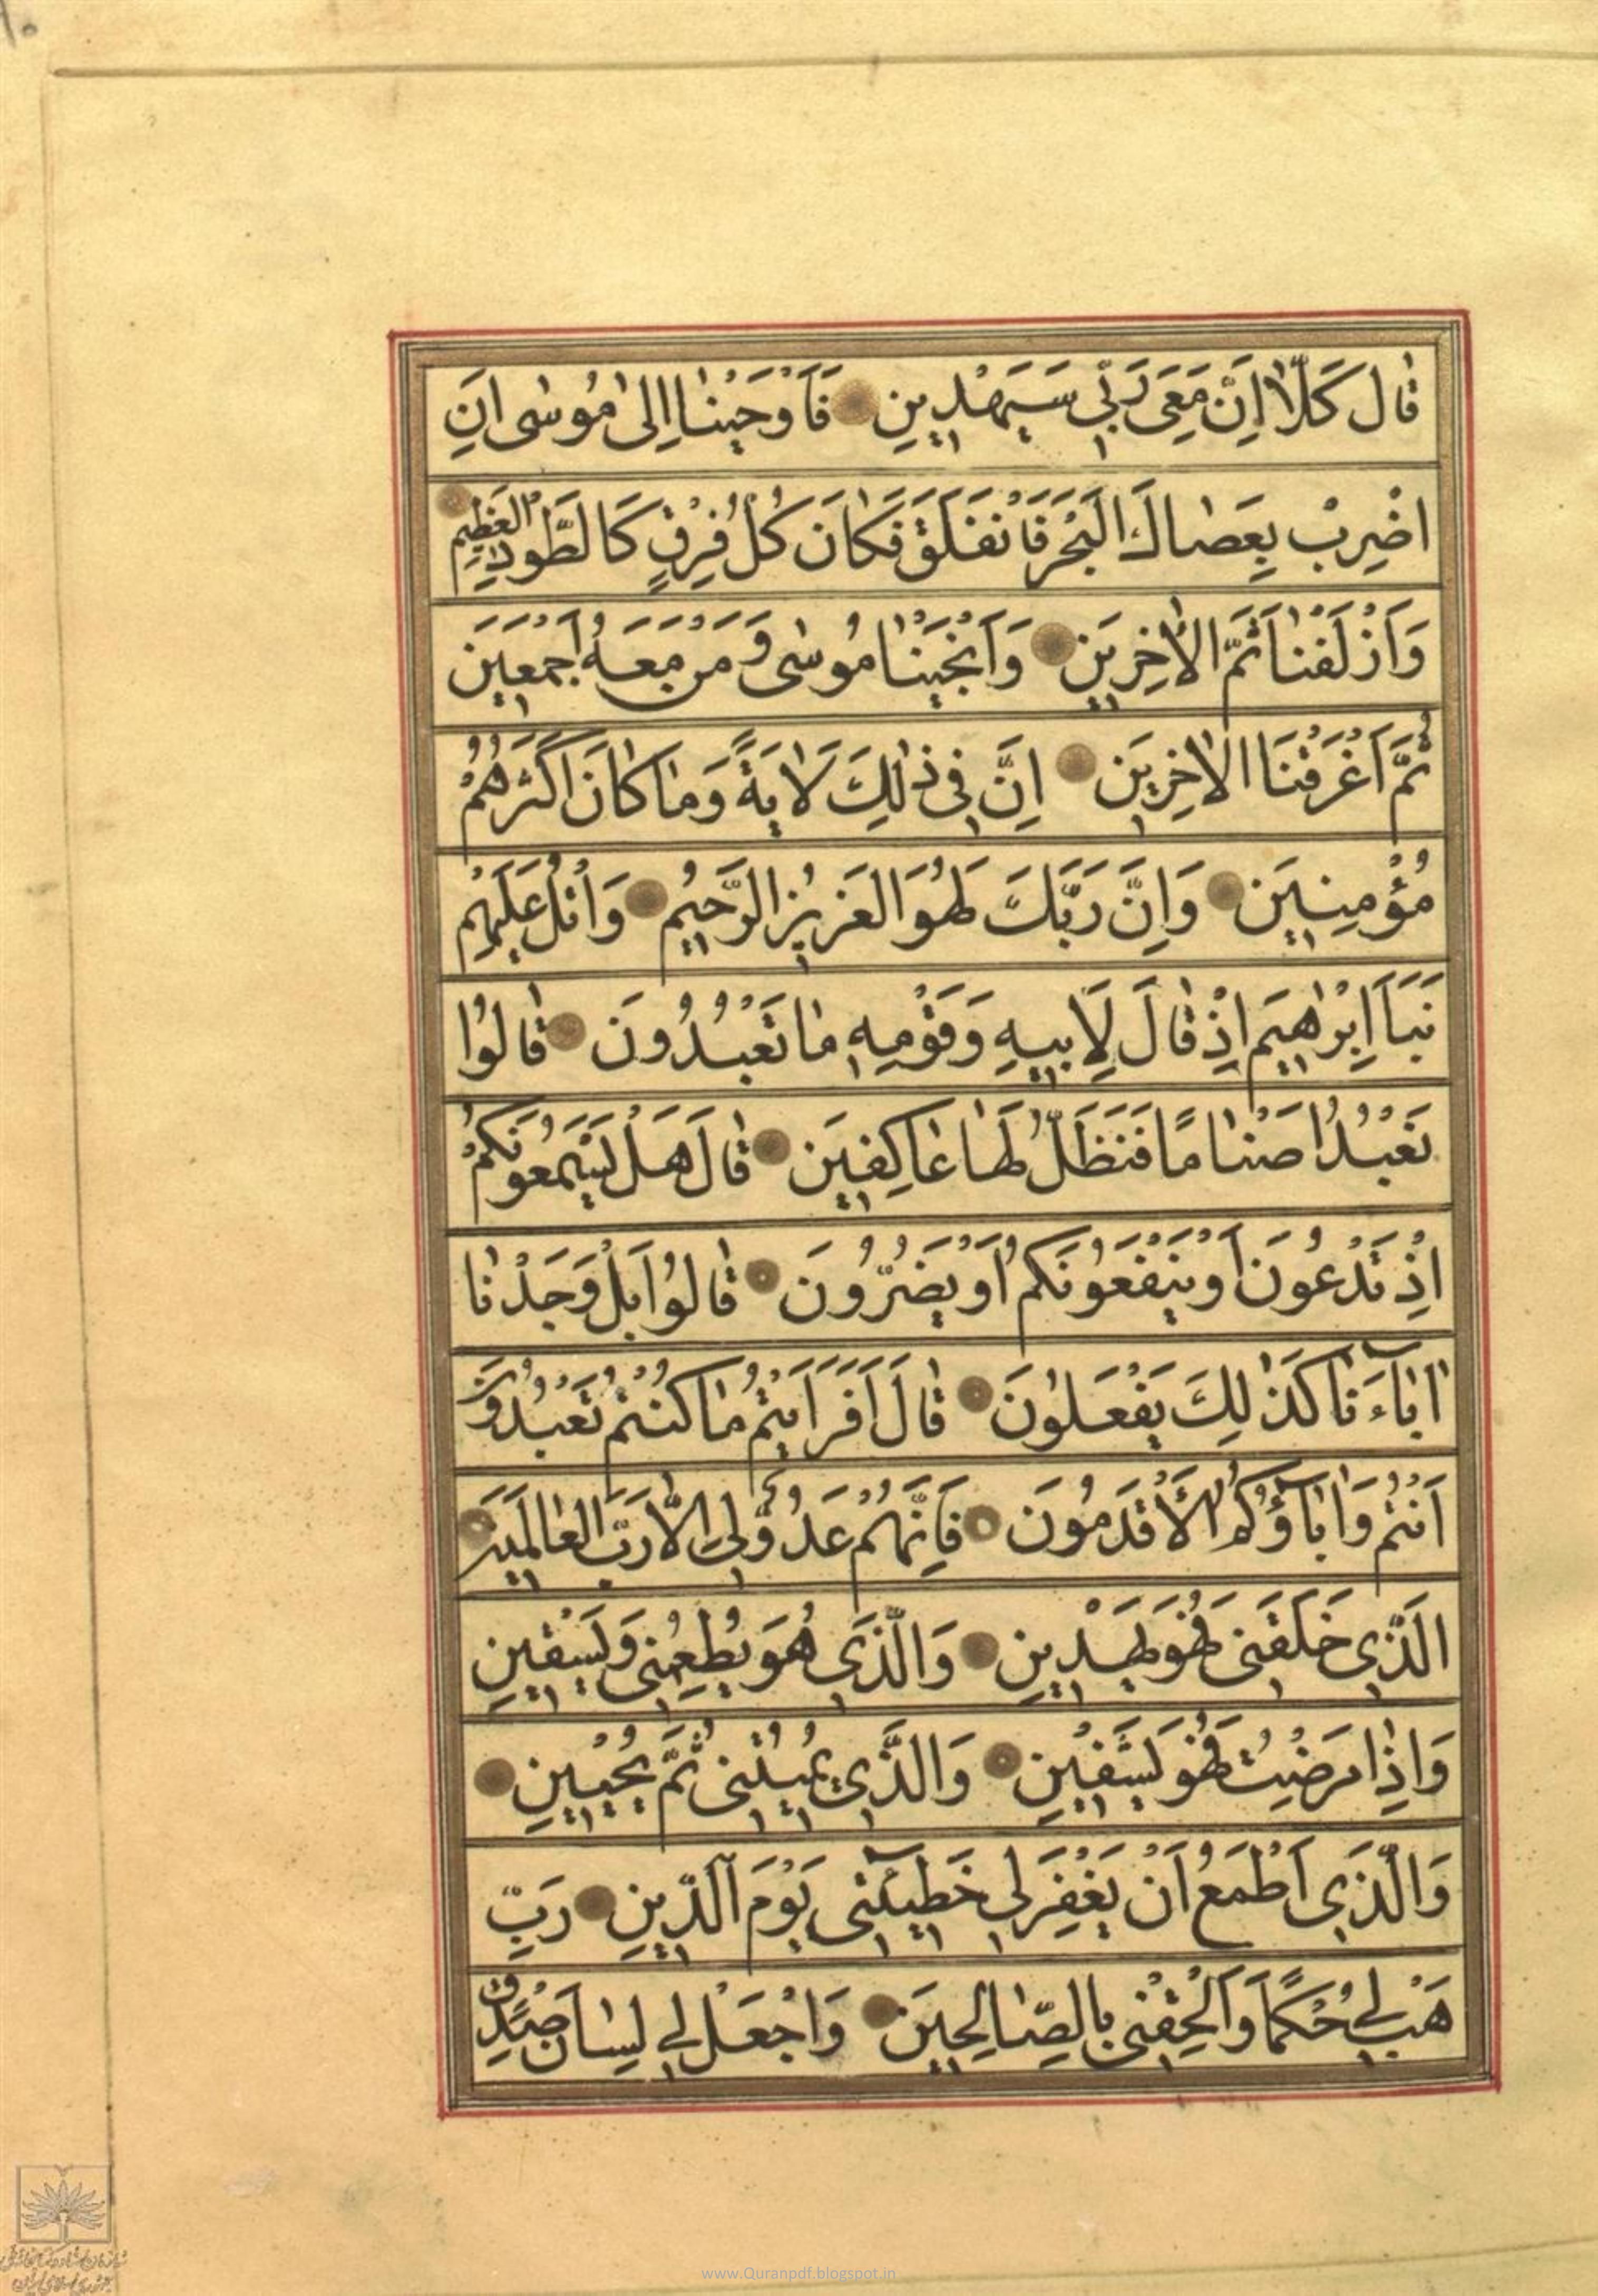 قَالَ كَلَّا اِنَّ مَعِىَ رَبِّى سَيَهْدِينِ فَاَوْحَيْنَا اِلىٰ مُوسٰى اَنِ
اضْرِبْ بِعَصَاكَ الْبَحْرَ فَانْفَلَقَ فَكَانَ كُلُّ فِرْقٍ كَالطَّوْدِ الْعَظِيمِ
وَاَزْلَفْنَا ثَمَّ الْاٰخَرِينَ وَاَنْجَيْنَا مُوسٰى وَمَنْ مَعَهُ اَجْمَعِينَ
ثُمَّ اَغْرَقْنَا الْاٰخَرِينَ اِنَّ فِى ذٰلِكَ لَاٰيَةً وَمَا كَانَ اَكْثَرُهُمْ
مُؤْمِنِينَ وَاِنَّ رَبَّكَ لَهُوَ الْعَزِيزُ الرَّحِيمُ وَاتْلُ عَلَيْهِمْ
نَبَاَ اِبْرٰهِيمَ اِذْ قَالَ لِاَبِيهِ وَقَوْمِهِ مَا تَعْبُدُونَ قَالُوا
نَعْبُدُ اَصْنَامًا فَنَظَلُّ لَهَا عَاكِفِينَ قَالَ هَلْ يَسْمَعُونَكُمْ
اِذْ تَدْعُونَ اَوْ يَنْفَعُونَكُمْ اَوْ يَضُرُّونَ قَالُوا بَلْ وَجَدْنَا
اٰبَاءَنَا كَذٰلِكَ يَفْعَلُونَ قَالَ اَفَرَاَيْتُمْ مَا كُنْتُمْ تَعْبُدُونَ
اَنْتُمْ وَاٰبَاؤُكُمُ الْاَقْدَمُونَ فَاِنَّهُمْ عَدُوٌّ لِى اِلَّا رَبَّ الْعَالَمِينَ
الَّذِى خَلَقَنِى فَهُوَ يَهْدِينِ وَالَّذِى هُوَ يُطْعِمُنِى وَيَسْقِينِ
وَاِذَا مَرِضْتُ فَهُوَ يَشْفِينِ وَالَّذِى يُمِيتُنِى ثُمَّ يُحْيِينِ
وَالَّذِى اَطْمَعُ اَنْ يَغْفِرَ لِى خَطِيئَتِى يَوْمَ الدِّينِ رَبِّ
هَبْ لِى حُكْمًا وَاَلْحِقْنِى بِالصَّالِحِينَ وَاجْعَلْ لِى لِسَانَ صِدْقٍ
www.Quranpdf.blogspot.in